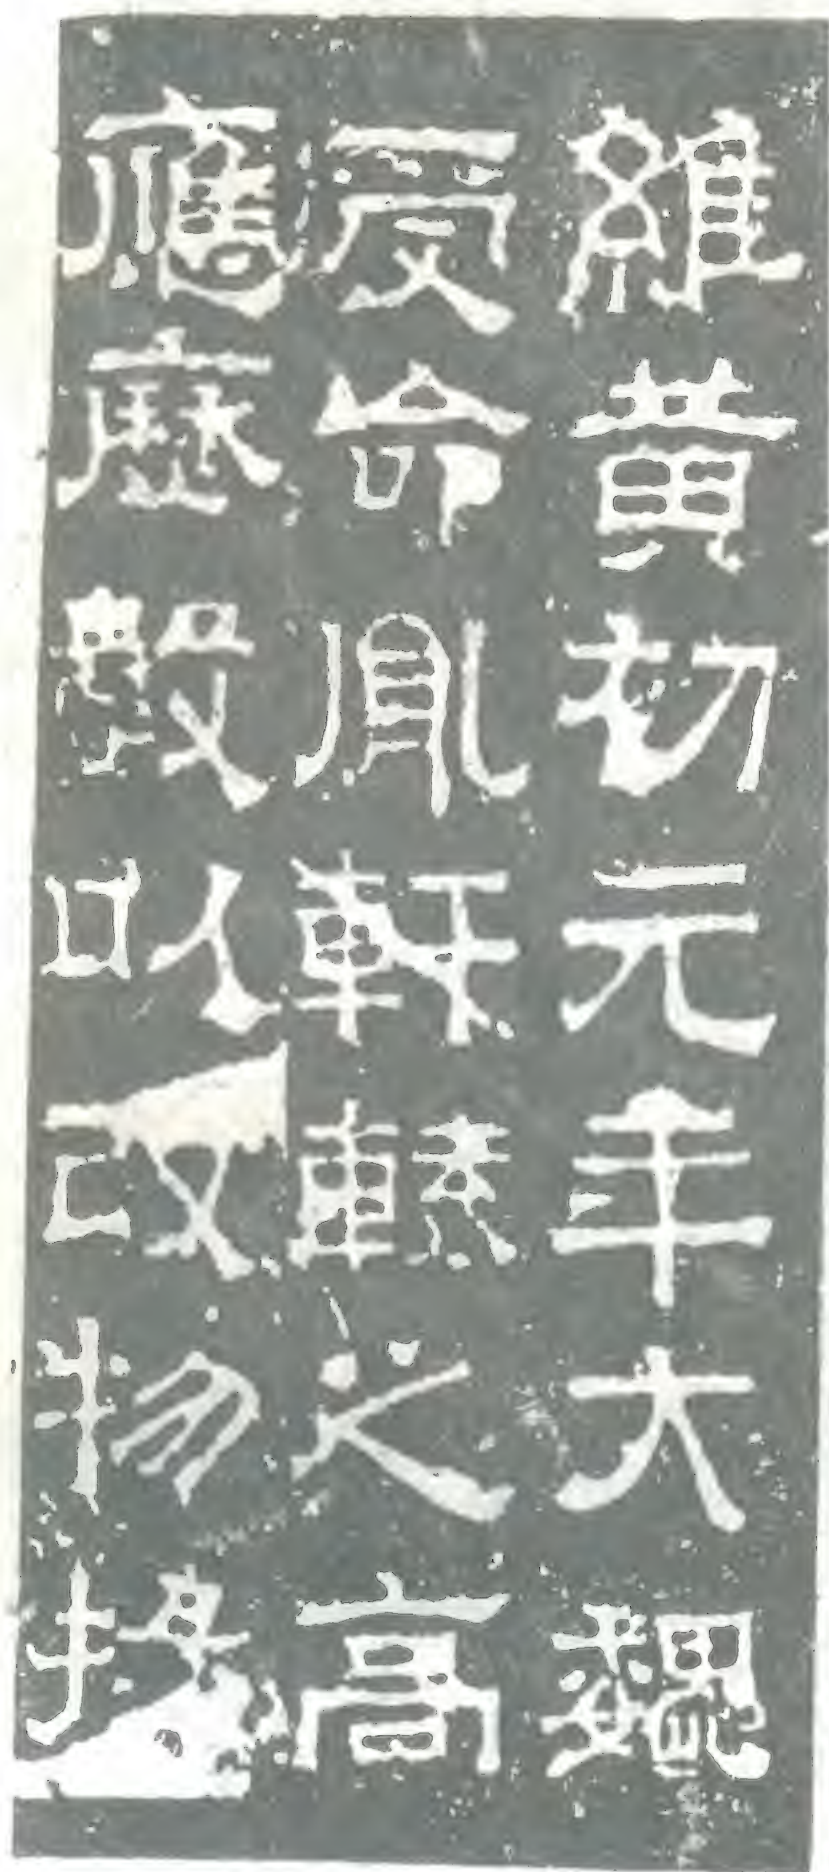 維黃初元年大魏
受命胤軒轅之高
應歷數以改物揚